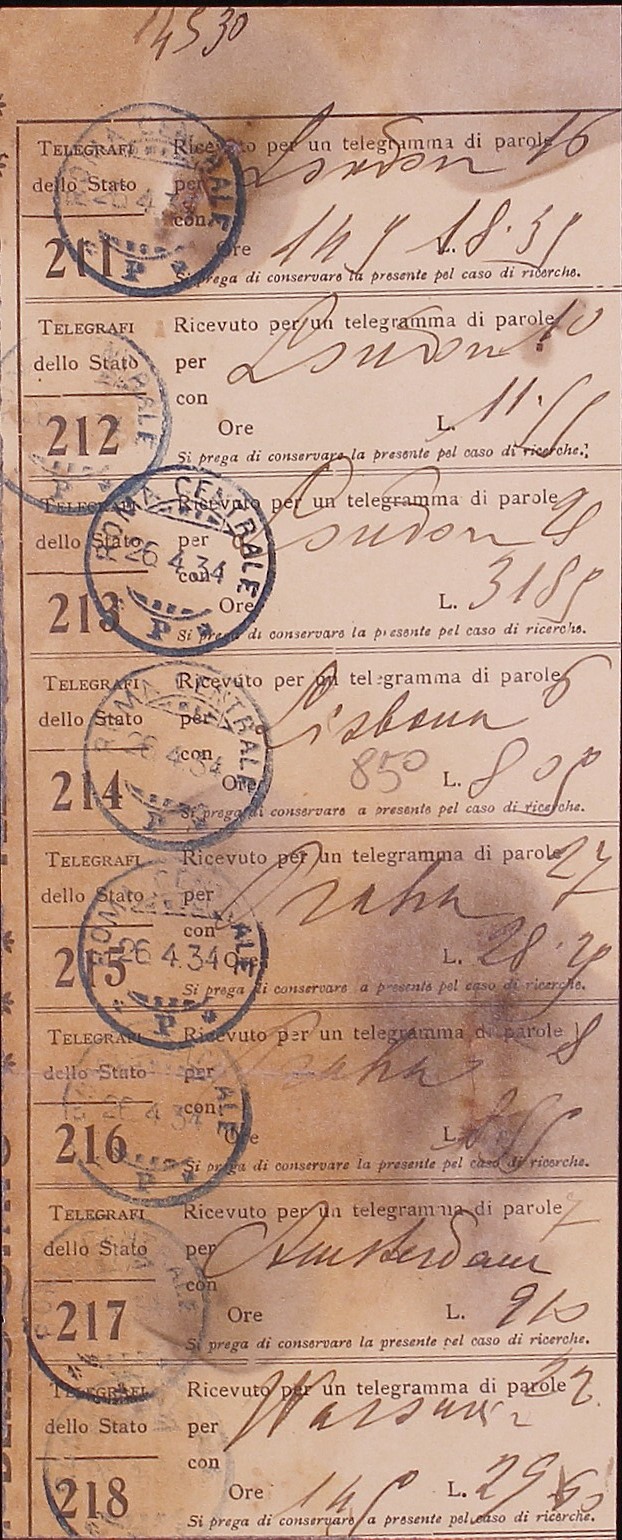 14530
TELEGRAFI Ricevuto per un telegramma di parole 16
dello Stato per London
con
211 Ore 145 L. 18.35
Si prega di conservare la presente pel caso di ricerche.
ROMA CENTRALE
26 4 34
P
TELEGRAFI Ricevuto per un telegramma di parole 10
dello Stato per London
con
212 Ore L. 11.55
Si prega di conservare la presente pel caso di ricerche.
TELEGRAFI Ricevuto per un telegramma di parole 28
dello Stato per London
con
213 Ore L. 3185
Si prega di conservare la presente pel caso di ricerche.
ROMA CENTRALE
26 4.34
P
TELEGRAFI Ricevuto per un telegramma di parole 6
dello Stato per Lisboua
con 850
214 Ore L. 8 05
Si prega di conservare a presente pel caso di ricerche.
ROMA CENTRALE
26 4.34
P
TELEGRAFI Ricevuto per un telegramma di parole 27
dello Stato per Praha
con
215 Ore L. 28.20
Si prega di conservare a presente pel caso di ricerche.
ROMA CENTRALE
26 4.34
P
TELEGRAFI Ricevuto per un telegramma di parole 8
dello Stato per Praha
con
216 Ore L.
Si prega di conservare la presente pel caso di ricerche.
26 4 34
P
TELEGRAFI Ricevuto per un telegramma di parole 7
dello Stato per Amsterdam
con
217 Ore L. 910
Si prega di conservare la presente pel caso di ricerche.
TELEGRAFI Ricevuto per un telegramma di parole 32
dello Stato per Warsavia
con
218 Ore 145 L. 29
Si prega di conservare a presente pel caso di ricerche.